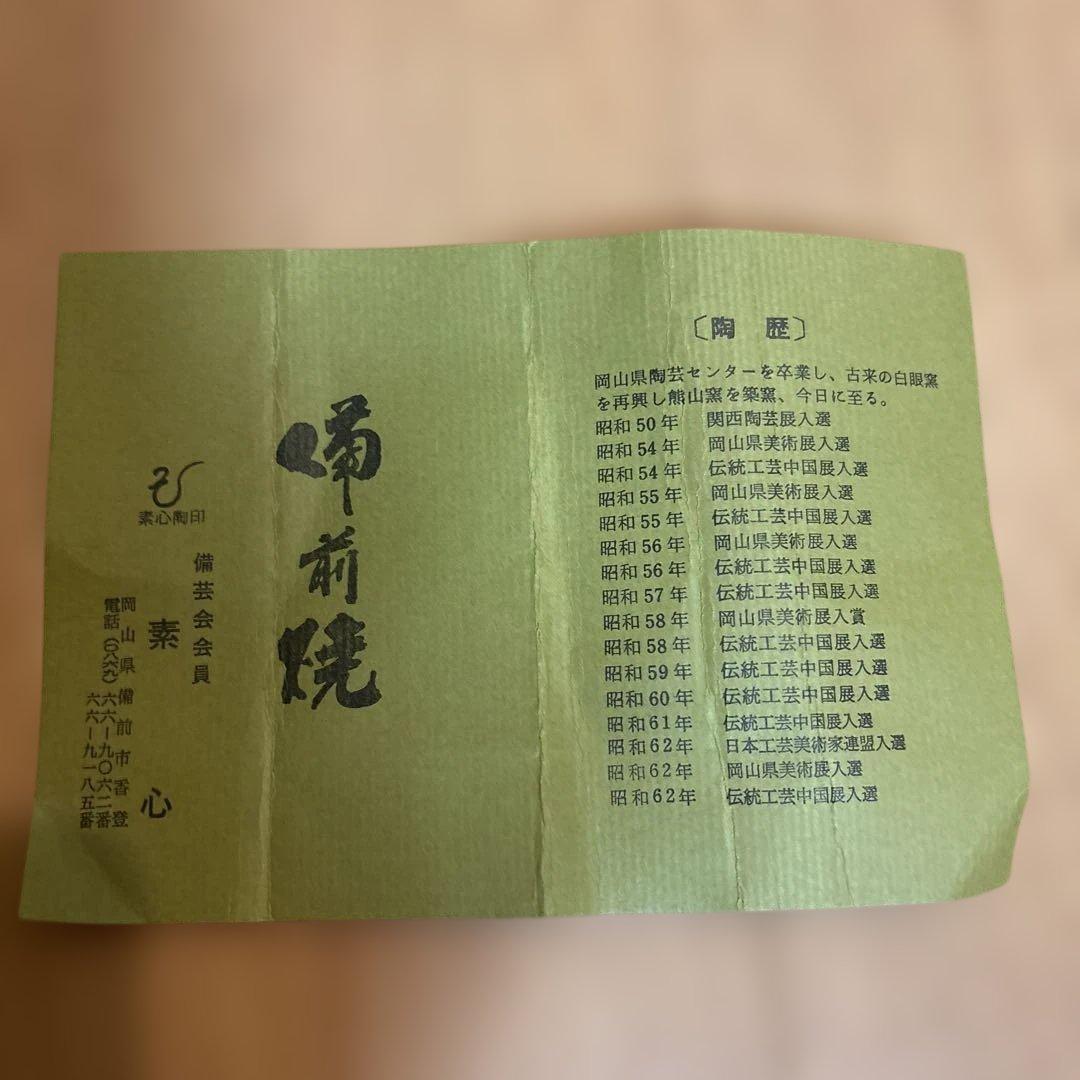 〔陶歴〕
岡山県陶芸センターを卒業し、古来の白眼窯
を再興し熊山窯を築窯、今日に至る。
昭和50年 関西陶芸展入選
昭和54年 岡山県美術展入選
昭和54年 伝統工芸中国展入選
昭和55年 岡山県美術展入選
昭和55年 伝統工芸中国展入選
昭和56年 岡山県美術展入選
昭和56年 伝統工芸中国展入選
昭和57年 伝統工芸中国展入選
昭和58年 岡山県美術展入賞
昭和58年 伝統工芸中国展入選
昭和59年 伝統工芸中国展入選
昭和60年 伝統工芸中国展入選
昭和61年 伝統工芸中国展入選
昭和62年 日本工芸美術家連盟入選
昭和62年 岡山県美術展入選
昭和62年 伝統工芸中国展入選
備前焼
素心陶印
備芸会会員
素心
岡山県備前市香登
電話(〇八六九)六六ー九〇六二番
六六ー九一八五番